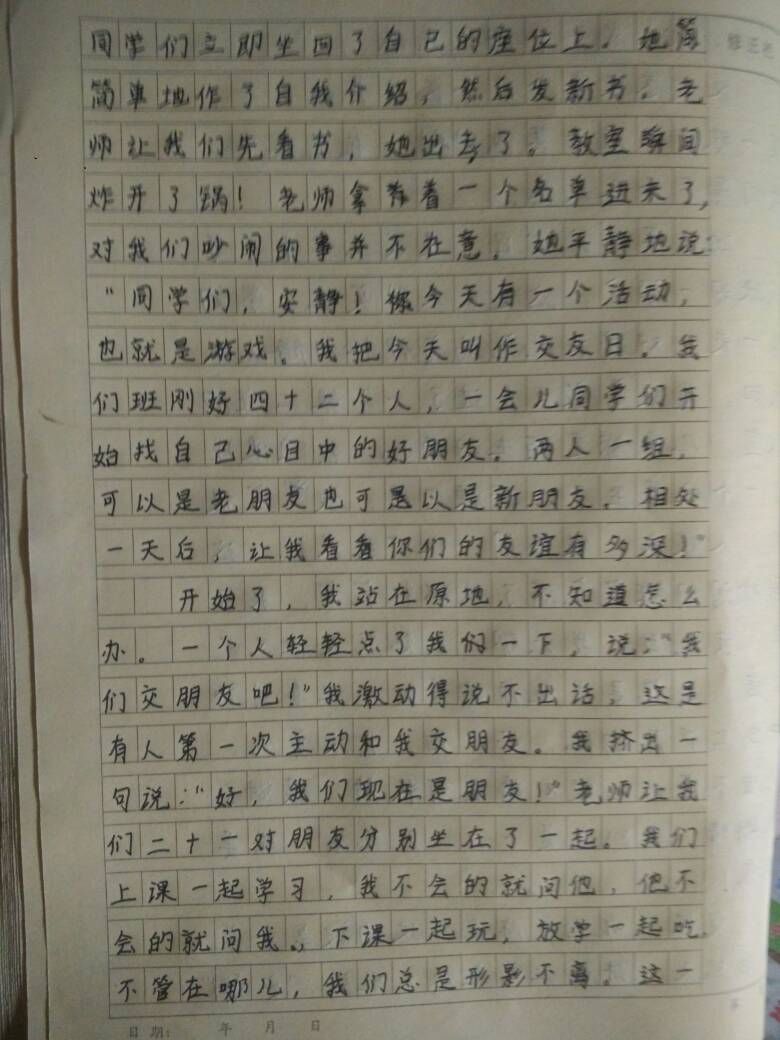 同学们立即坐回了自己的座位上。她简
简单地作了自我介绍，然后发新书。老
师让我们先看书，她出去了。教室瞬间
炸开了锅！老师拿着一个名单进来了，
对我们吵闹的事并不在意，她平静地说
“同学们，安静！今天有一个活动，
也就是游戏。我把今天叫作交友日。我
们班刚好四十二个人，一会儿同学们开
始找自己心目中的好朋友。两人一组，
可以是老朋友也可是以是新朋友。相处
一天后，让我看看你们的友谊有多深！”
开始了，我站在原地，不知道怎么
办。一个人轻轻点了我们一下，说：“我
们交朋友吧！”我激动得说不出话，这是
有人第一次主动和我交朋友。我挤出一
句说：“好，我们现在是朋友！”老师让我
们二十一对朋友分别坐在了一起。我们
上课一起学习，我不会的就问他，他不
会的就问我。，下课一起玩，放学一起吃，
不管在哪儿，我们总是形影不离。这一
日期： 年 月 日